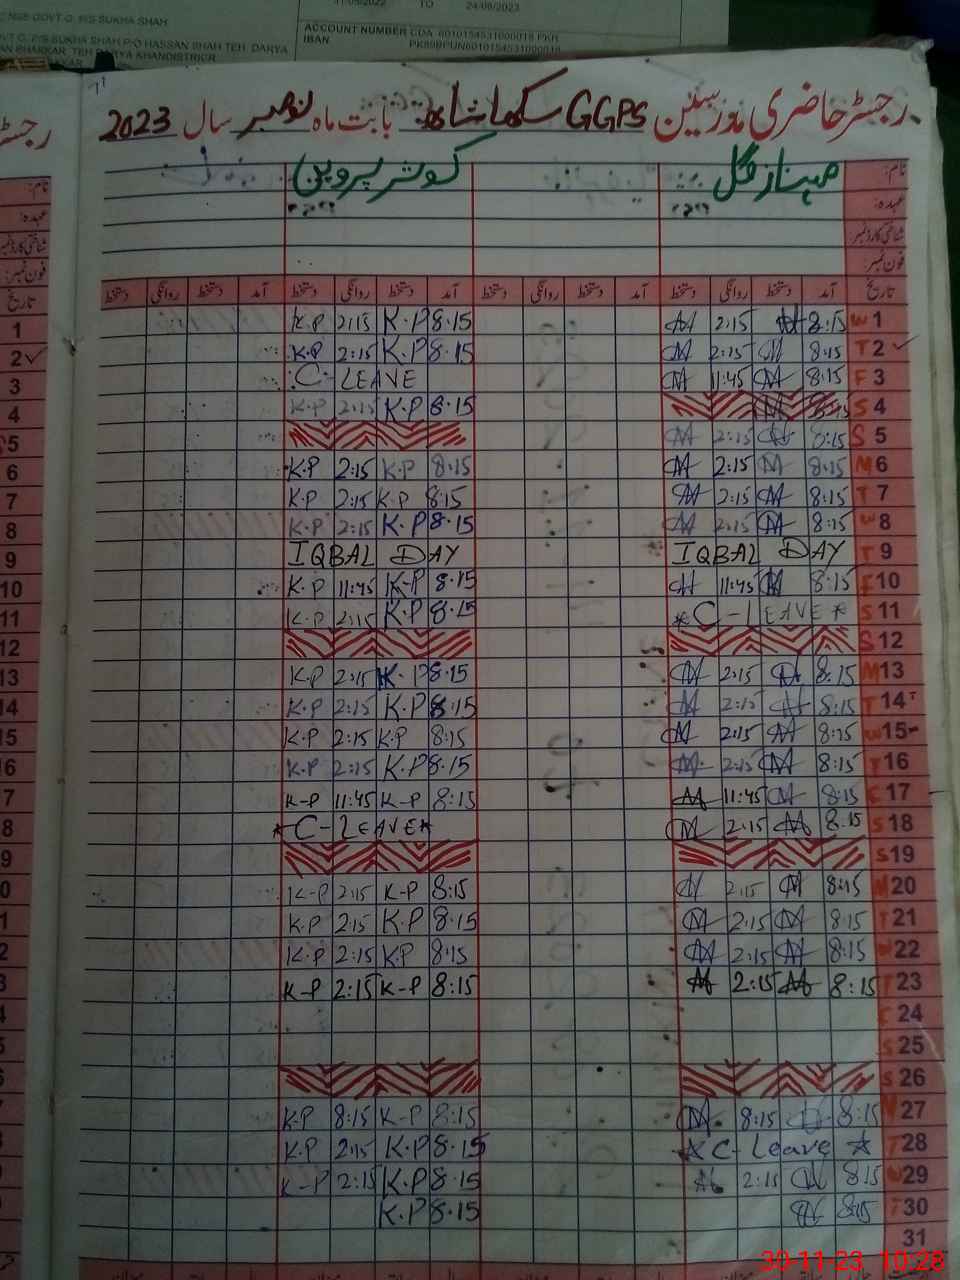 NSE GOVT G. P/S SUKHA SHAH
31/05/2022 TO 24/08/2023
GOVT G. P/S SUKHA SHAH P/O HASSAN SHAH TEH. DARYA
ACCOUNT NUMBER CDA 6010154531000018 PKR
KHAN BHAKKAR, TEH DARYA KHANDISTRICR
IBAN
رجسٹر حاضری مدرسین GGPS سکھا شاہ بابت ماہ نومبر سال 2023
نام: مہناز گل کوثر پروین
عہدہ:
شناختی کارڈ نمبر
فون نمبر:
تاریخ آمد دستخط روانگی دستخط آمد دستخط روانگی دستخط آمد دستخط روانگی دستخط آمد دستخط روانگی دستخط
K.P 2:15 K.P 8.15 2:15 8:15 W 1
K.P 2:15 K.P 8.15 2:15 8:15 T 2
C- LEAVE 11:45 8:15 F 3
K.P 2:15 K.P 8.15 8:15 S 4
2:15 8:15 S 5
K.P 2:15 K.P 8:15 2:15 8:15 M 6
K.P 2:15 K.P 8:15 2:15 8:15 T 7
K.P 2:15 K.P 8.15 2:15 8:15 W 8
IQBAL DAY IQBAL DAY T 9
K.P 11:45 K-P 8.15 11:45 8:15 F 10
K.P 2:15 K.P 8.15 *C-LEAVE* S 11
S 12
K.P 2:15 K.P 8:15 2:15 8.15 M 13
K.P 2:15 K.P 8:15 2:15 8:15 T 14
K.P 2:15 K.P 8:15 2:15 8:15 W 15
K.P 2:15 K.P 8.15 2:15 8:15 T 16
K-P 11:45 K-P 8:15 11:45 8:15 F 17
*C-LEAVE* 2:15 8:15 S 18
S 19
K-P 2:15 K-P 8:15 2:15 8:15 M 20
K.P 2:15 K.P 8:15 2:15 8:15 T 21
K.P 2:15 K.P 8:15 2:15 8:15 W 22
K-P 2:15 K-P 8:15 2:15 8:15 T 23
F 24
S 25
S 26
K.P 8:15 K-P 8:15 8:15 8:15 M 27
K.P 2:15 K.P 8:15 *C-Leave* T 28
K-P 2:15 K.P 8:15 2:15 8:15 W 29
K.P 8.15 8:15 T 30
31
30-11-23 10:28